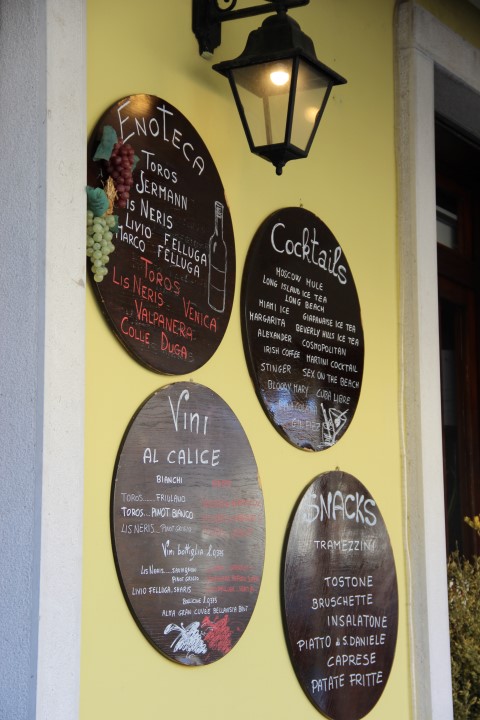 ENOTECA
TOROS
JERMANN
LIS NERIS
LIVIO FELLUGA
MARCO FELLUGA
TOROS
LIS NERIS VENICA
VALPANERA
COLLE DUGA
COCKTAILS
MOSCOW MULE
LONG ISLAND ICE TEA
LONG BEACH
MIAMI ICE GIAPANAISE ICE TEA
MARGARITA BEVERLY HILLS ICE TEA
ALEXANDER COSMOPOLITAN
IRISH COFFEE MARTINI COCKTAIL
STINGER SEX ON THE BEACH
BLOODY MARY CUBA LIBRE
GIN FIZZ
VINI
AL CALICE
BIANCHI
TOROS......FRIULANO
TOROS...PINOT BIANCO
LIS NERIS...PINOT GRIGIO
VINI bottiglia
LIS NERIS.....SAUVIGNON
PINOT GRIGIO
LIVIO FELLUGA SHARIS
BOLLICINE
ALMA GRAN CUVEE BELLAVISTA BRUT
SNACKS
TRAMEZZINI
TOSTONE
BRUSCHETTE
INSALATONE
PIATTO di S.DANIELE
CAPRESE
PATATE FRITTE